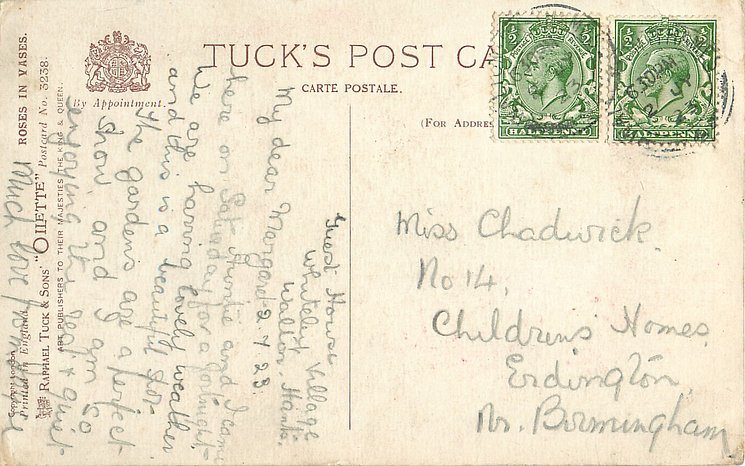 TUCK'S POST CA
CARTE POSTALE.
(FOR ADDRES
By Appointment.
ROSES IN VASES.
RAPHAEL TUCK & SONS' "OILETTE" Postcard No. 3238.
ART PUBLISHERS TO THEIR MAJESTIES THE KING & QUEEN.
Copyright London
Printed in England
HALFPENNY
HALFPENNY
6.30 PM
2 JY
23
Guest House
Whiteley Village
Walton, Hants.
My dear Margaret 2.7.23
Auntie and I came
here on Saturday for a fortnight.
We are having lovely weather
and this is a beautiful
The gardens are a perfect
show and I am so
enjoying the rest & quiet
Much love from
Miss Chadwick.
No 14,
Childrens Homes
Erdington,
Nr. Birmingham